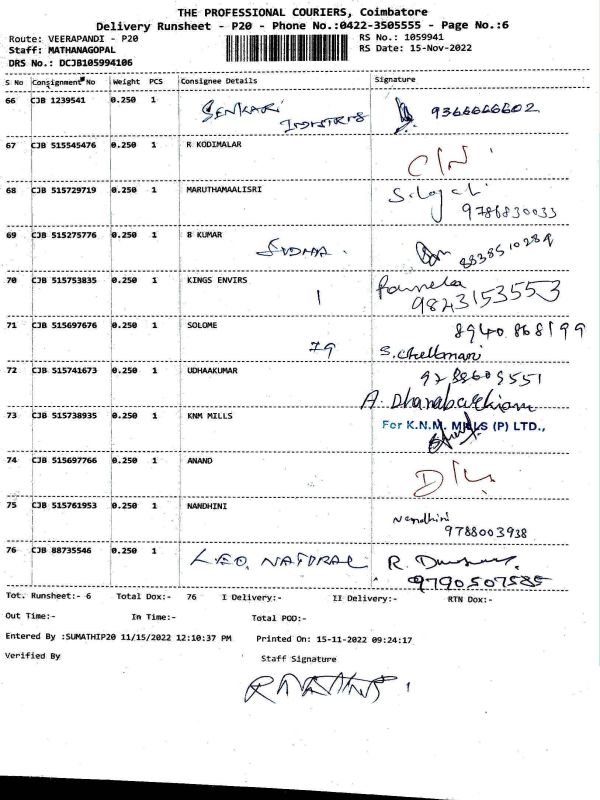 THE PROFESSIONAL COURIERS, Coimbatore
Delivery Runsheet - P20 - Phone No.:0422-3505555 - Page No.:6
Route: VEERAPANDI - P20
RS No.: 1059941
Staff: MATHANAGOPAL
RS Date: 15-Nov-2022
DRS No.: DCJB105994106
S No Consignment No Weight PCS Consignee Details Signature
66 CJB 1239541 0.250 1 SENKARI INDISTRIS 9366666602
67 CJB 515545476 0.250 1 R KODIMALAR
68 CJB 515729719 0.250 1 MARUTHAMAALISRI
9786830033
69 CJB 515275776 0.250 1 B KUMAR
SUDHA . 8838510289
70 CJB 515753835 0.250 1 KINGS ENVIRS Pamela
1 9843153553
71 CJB 515697676 0.250 1 SOLOME 8940868199
79 S. Chellmani
72 CJB 515741673 0.250 1 UDHAAKUMAR
A. Dhanabakkiam
73 CJB 515738935 0.250 1 KNM MILLS For K.N.M. MILLS (P) LTD.,
74 CJB 515697766 0.250 1 ANAND
75 CJB 515761953 0.250 1 NANDHINI Nandhini
9788003938
76 CJB 88735546 0.250 1 LEO. NATURAL R.
9790507585
Tot. Runsheet:- 6 Total Dox:- 76 I Delivery:- II Delivery:- RTN Dox:-
Out Time:- In Time:- Total POD:-
Entered By :SUMATHIP20 11/15/2022 12:10:37 PM Printed On: 15-11-2022 09:24:17
Verified By Staff Signature